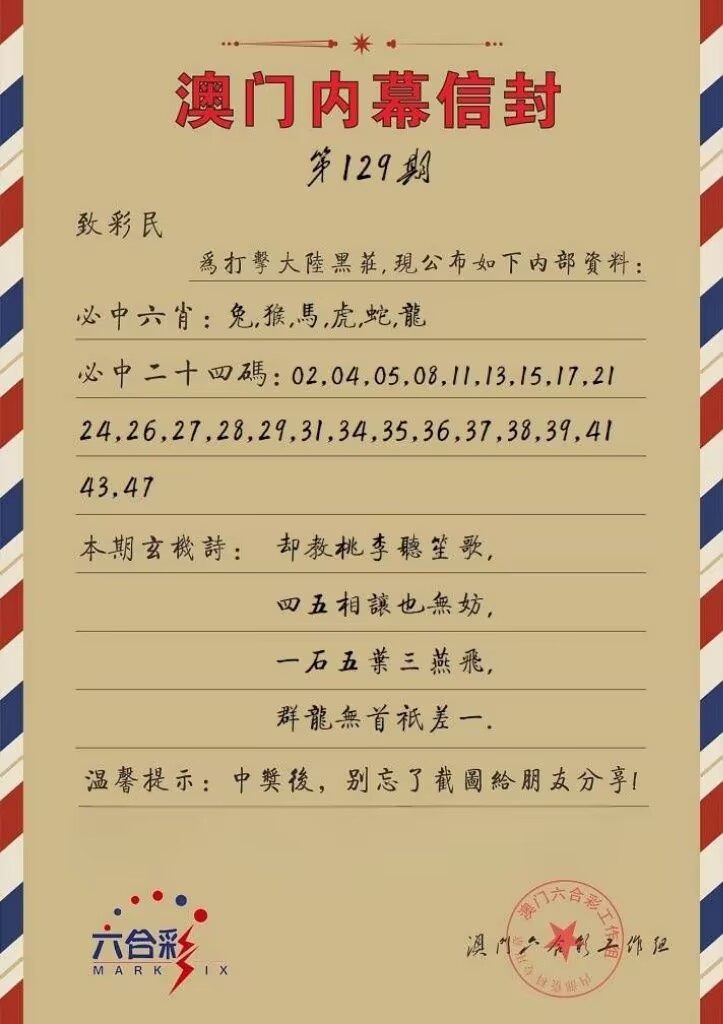 澳门内幕信封
第129期
致彩民
爲打擊大陸黑莊,現公布如下内部資料:
必中六肖:兔,猴,馬,虎,蛇,龍
必中二十四碼:02,04,05,08,11,13,15,17,21
24,26,27,28,29,31,34,35,36,37,38,39,41
43,47
本期玄機詩: 却教桃李聽笙歌,
四五相讓也無妨,
一石五葉三燕飛,
群龍無首祇差一.
温馨提示:中獎後,别忘了截圖給朋友分享!
六合彩
MARK SIX
澳門六合彩工作组
澳门六合彩工作组
内部资料专用章